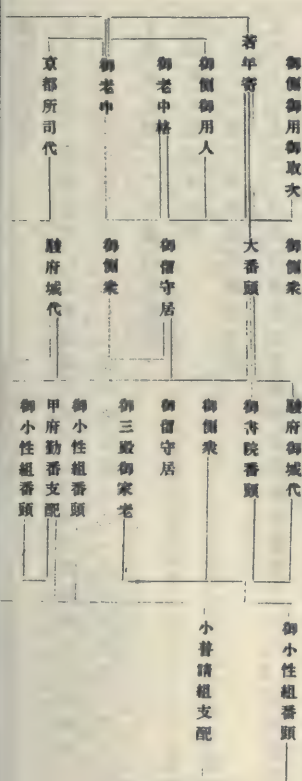 御側御用御取次
若年寄
御側御用人
御老中格
御老中
京都所司代
御側衆
大番頭
御留守居
御側衆
駿府城代
駿府御城代
御書院番頭
御側衆
御留守居
御三殿御家老
御小性組番頭
甲府勤番支配
御小性組番頭
御小性組番頭
小普請組支配